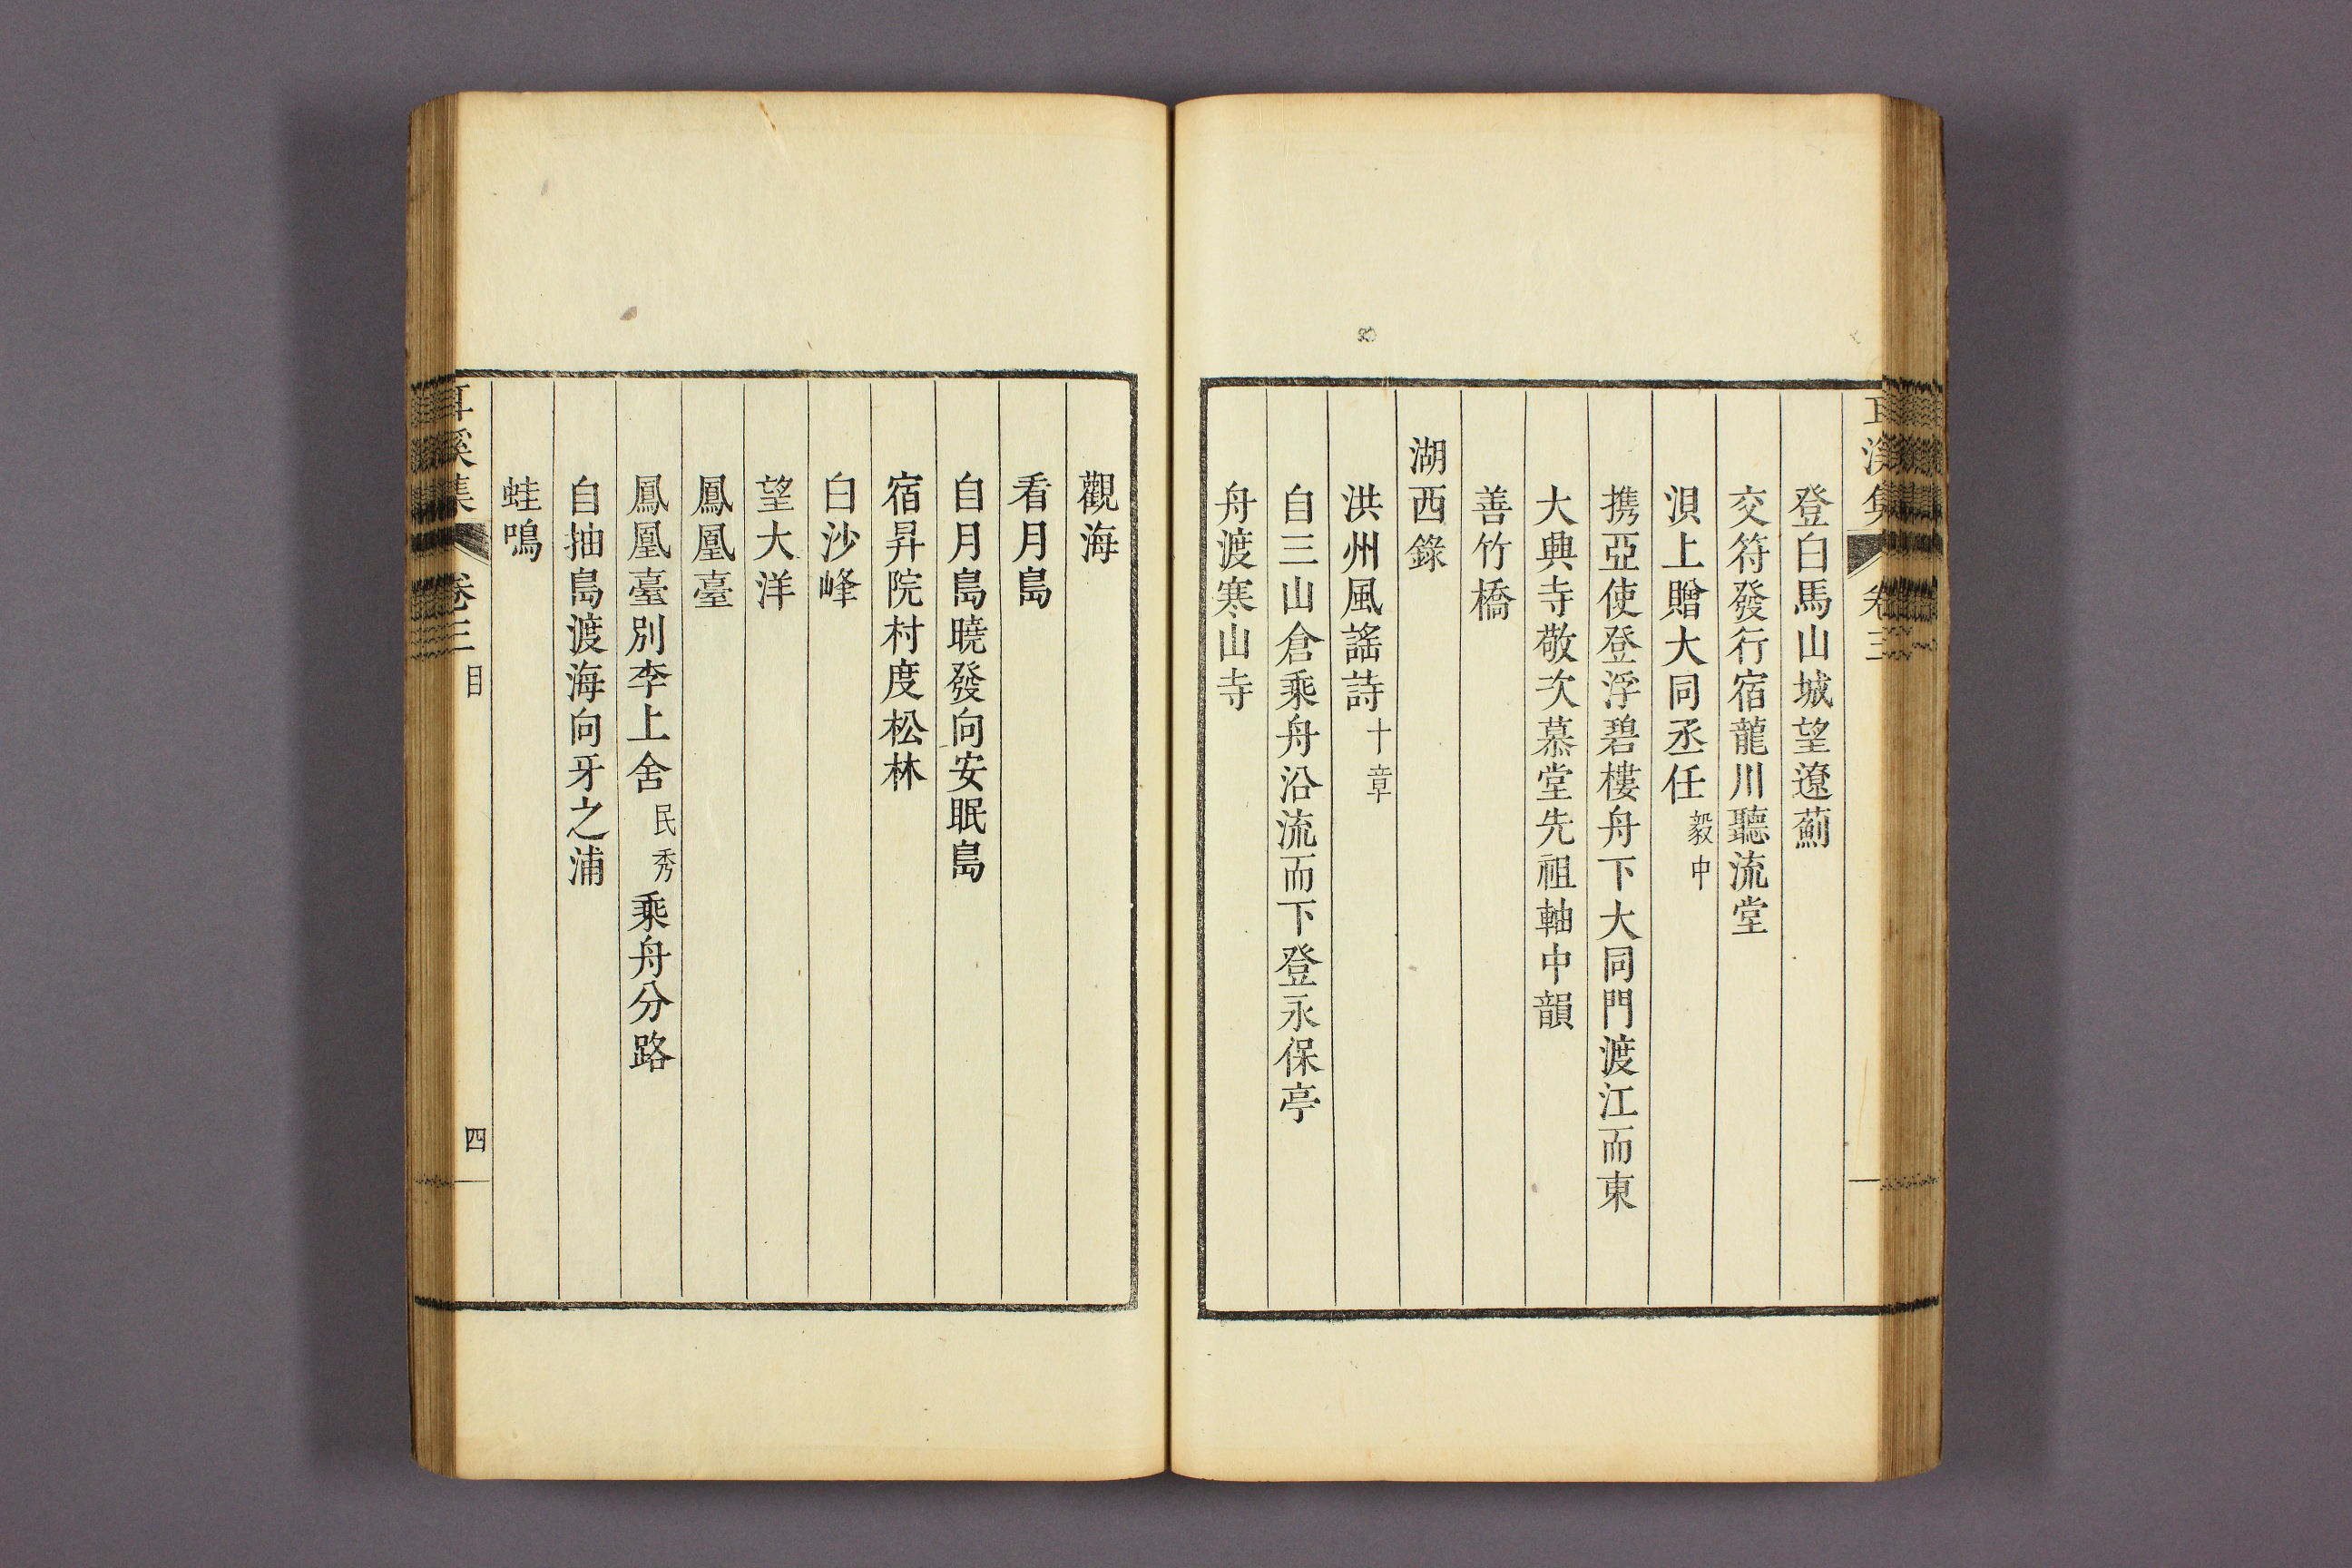 耳溪集 卷三
登白馬山城望遼薊
交符發行宿龍川聽流堂
浿上贈大同丞任毅中
携亞使登浮碧樓舟下大同門渡江而東
大興寺敬次慕堂先祖軸中韻
善竹橋
湖西錄
洪州風謠詩十章
自三山倉乘舟沿流而下登永保亭
舟渡寒山寺
觀海
看月島
自月島曉發向安眠島
宿昇院村度松林
白沙峰
望大洋
鳳凰臺
鳳凰臺別李上舍民秀乘舟分路
自抽島渡海向牙之浦
蛙鳴
耳溪集 卷三 目 四